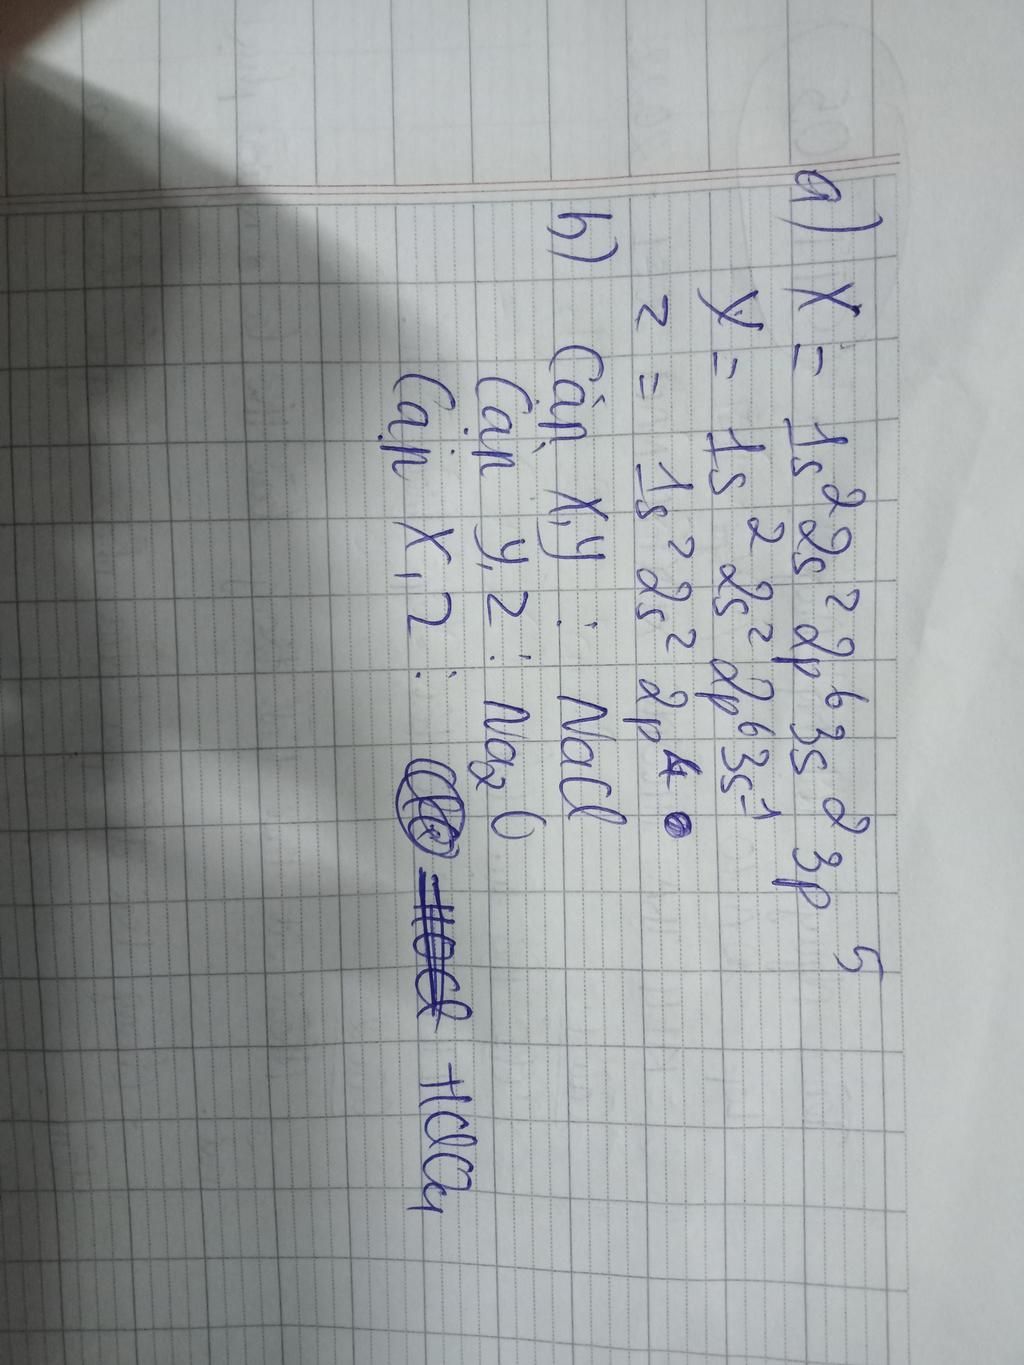 a) X = 1s² 2s² 2p⁶ 3s² 3p⁵
y = 1s² 2s² 2p⁶ 3s¹
z = 1s² 2s² 2p⁴
b) Cặp X, y : NaCl
Cặp y, z : Na₂O
Cặp X, z : HClO₄